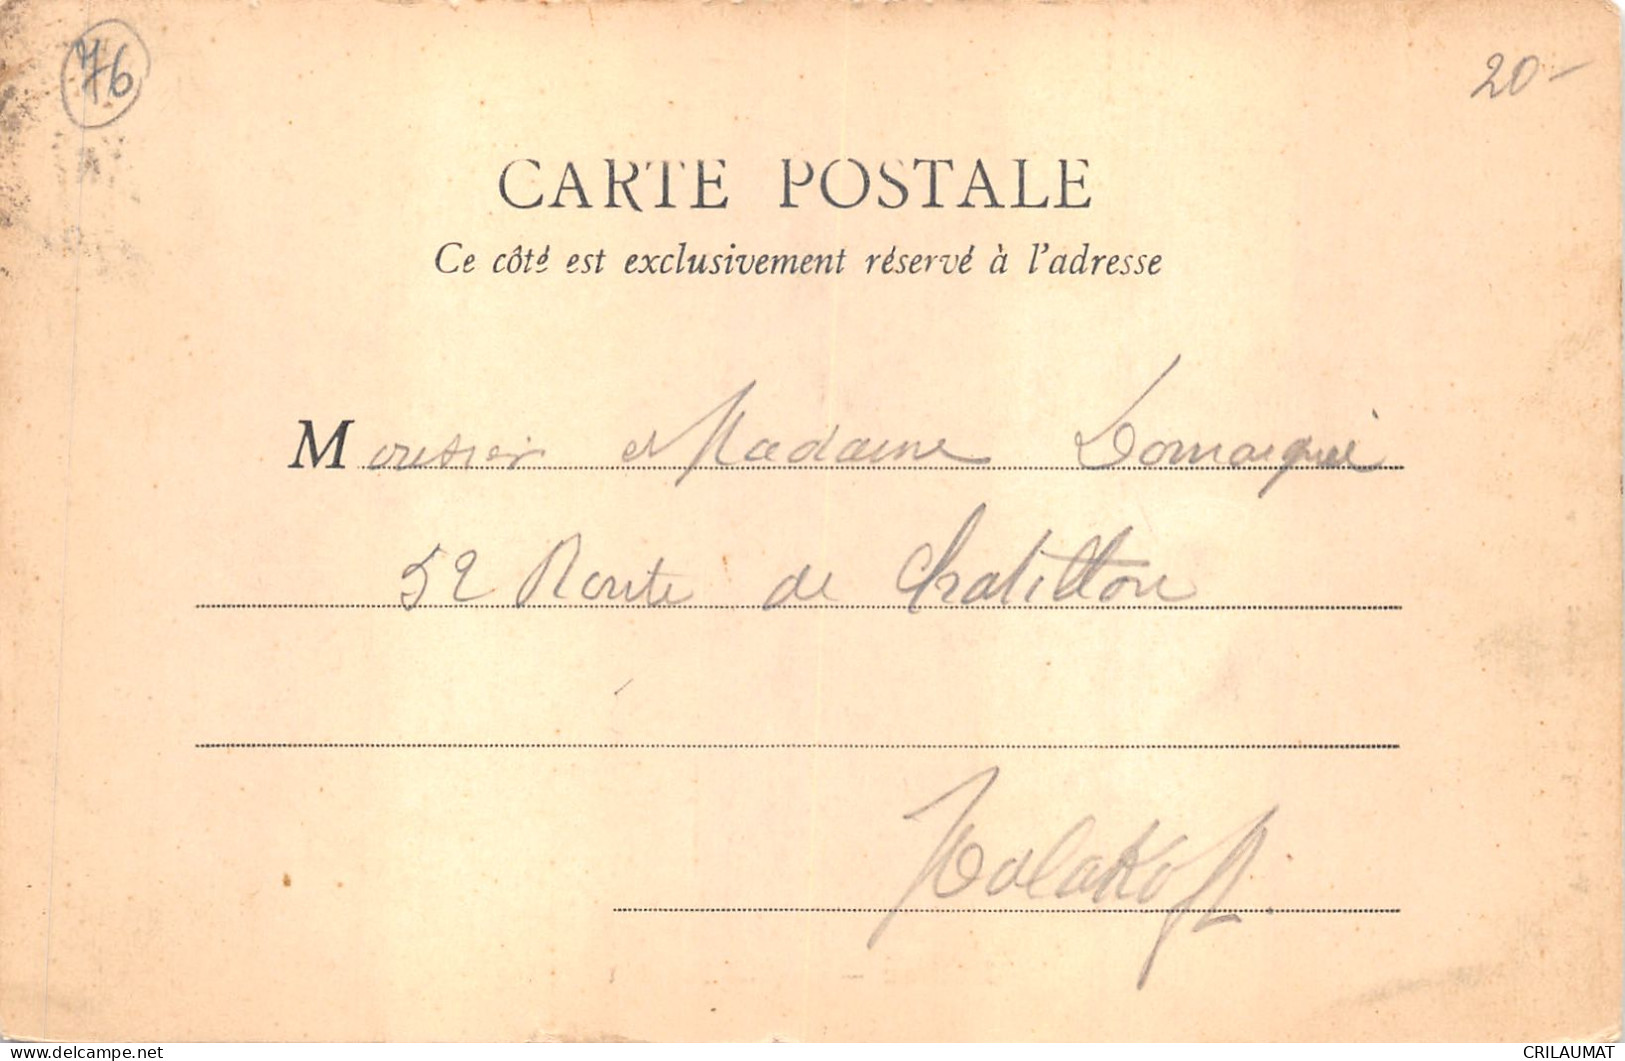 76
20-
CARTE POSTALE
Ce côté est exclusivement réservé à l'adresse
Monsieur et Madame
52 Route de Chatillon
Malakoff.
CRILAUMAT